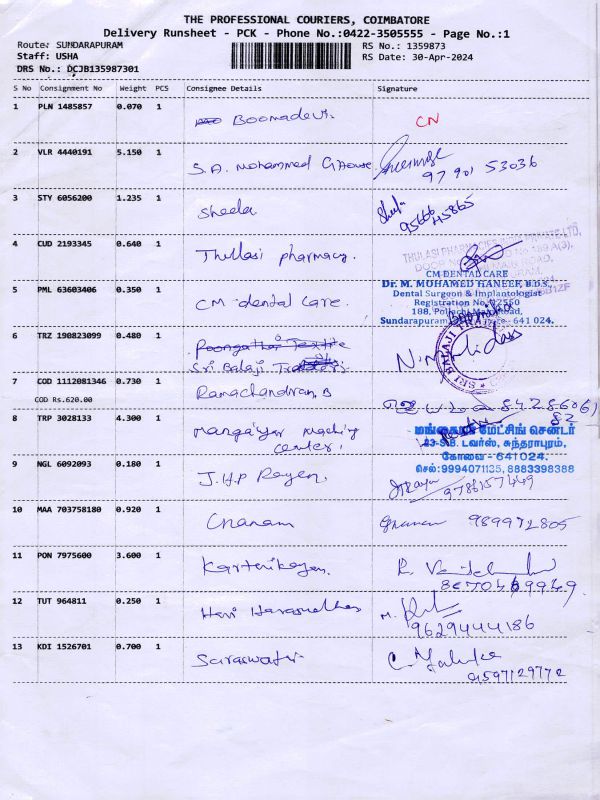 THE PROFESSIONAL COURIERS, COIMBATORE
Delivery Runsheet - PCK - Phone No.:0422-3505555 - Page No.:1
Route: SUNDARAPURAM
RS No.: 1359873
Staff: USHA
RS Date: 30-Apr-2024
DRS No.: DCJB135987301
S No Consignment No Weight PCS Consignee Details Signature
1 PLN 1485857 0.070 1 Boomadevi. CN
2 VLR 4440191 5.150 1 S.A. Mohammed Ghouse
97901 53036
3 STY 6056200 1.235 1 Sheela Sheela
95666 45865
4 CUD 2193345 0.640 1 Thullasi pharmacy.
CM DENTAL CARE
Dr. M. MOHAMED HANEEF, B.D.S.,
Dental Surgeon & Implantologist
Registration No. 22560
188, Pollachi Main Road,
Sundarapuram, 641 024.
5 PML 63603406 0.350 1 CM dental care.
6 TRZ 190823099 0.480 1 Poongathai Textile
Sri. Balaji Traders
SRI BALAJI TRA
7 COD 1112081346 0.730 1 Ramachandran, B
COD Rs.620.00
8 TRP 3028133 4.300 1 Mangaiyar maching
center,
மங்கையர் மேட்சிங் சென்டர்
23-S.B. டவர்ஸ், சுந்தராபுரம்,
கோவை - 641024.
செல்:9994071135, 8883398388
9 NGL 6092093 0.180 1 J.H.P Rayen.
9786157449
10 MAA 703758180 0.920 1 Gnanam Gnanam 989972805
11 PON 7975600 3.600 1 Karthikeyan.
12 TUT 964811 0.250 1 Hari
9629444186
13 KDI 1526701 0.700 1 Saraswathi
9597129772